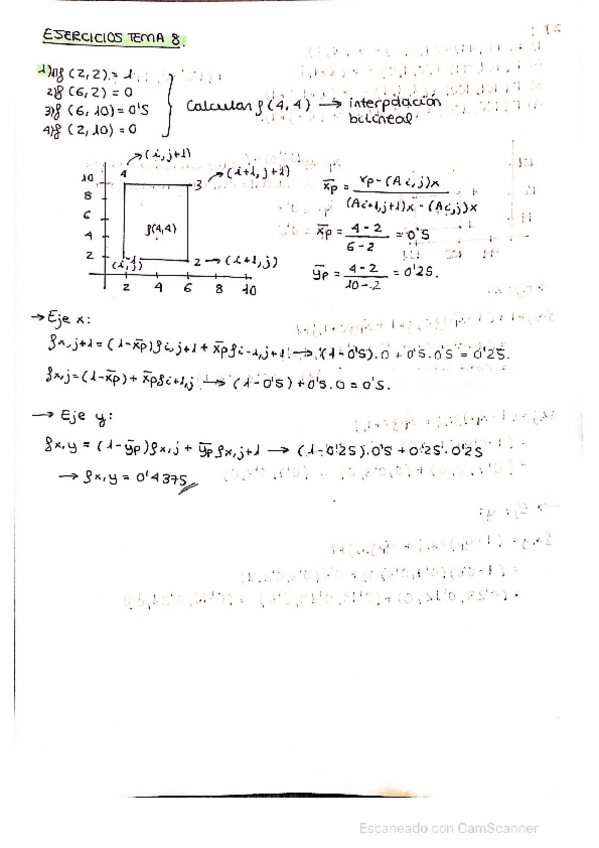 EJERCICIOS TEMA 8.
1) 1) f(2,2) = 1
2) f(6,2) = 0
3) f(6,10) = 0'5
4) f(2,10) = 0
Calcular f(4,4) → interpolación
bilineal
4 → (i,j+1)
3 → (i+1,j+1)
f(4,4)
1 (i,j)
2 → (i+1,j)
10
8
6
4
2
2 4 6 8 10
x̄p = xp - (Ai,j)x / (Ai+1,j+1)x - (Ai,j)x
x̄p = 4-2 / 6-2 = 0'5
ȳp = 4-2 / 10-2 = 0'25.
→ Eje x:
fx,j+1 = (1-x̄p)fi,j+1 + x̄p fi-1,j+1 → (1-0'5).0 + 0'5.0'5 = 0'25.
fx,j = (1-x̄p) + x̄p fi+1,j → (1-0'5) + 0'5.0 = 0'5.
→ Eje y:
fx,y = (1-ȳp)fx,j + ȳp fx,j+1 → (1-0'25).0'5 + 0'25.0'25
→ fx,y = 0'4375
Escaneado con CamScanner